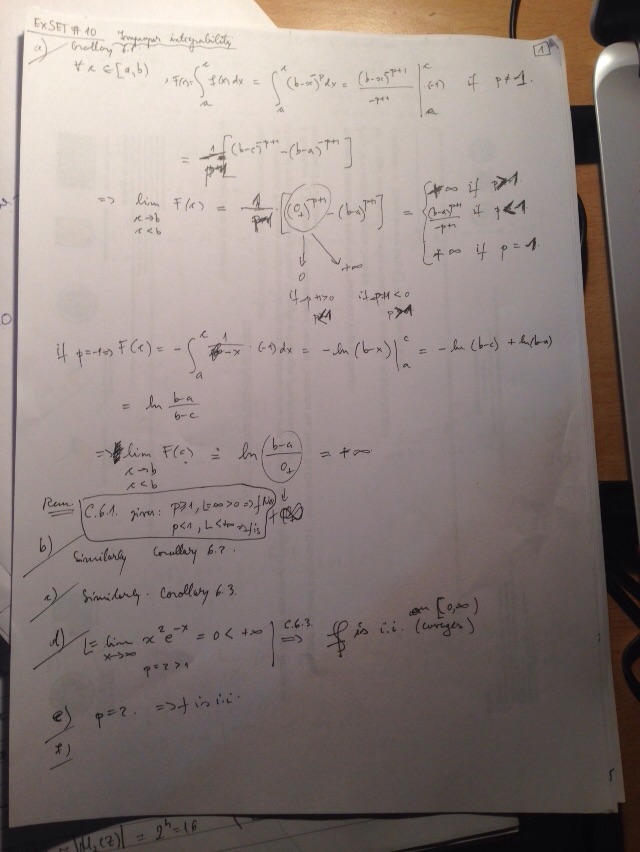 EX SET # 10 Improper integrability
1
a) Corollary 6.1
∀ c ∈ [a,b) , F(c) = ∫_a^c f(x) dx = ∫_a^c (b-x)^{-p} dx = (b-x)^{-p+1}/(-p+1) |_a^c (-1) if p ≠ 1.
= [(b-c)^{-p+1} - (b-a)^{-p+1}]
=> lim_{c→b, c<b} F(c) = [(0+)^{-p+1} - (b-a)^{-p+1}] = { +∞ if p>1
(b-a)^{-p+1}/(-p+1) if p<1
+∞ if p = 1
0 +∞
if -p+1>0 if -p+1<0
p<1 p>1
if p=1 => F(c) = - ∫_a^c 1/(b-x) · (-1) dx = -ln(b-x) |_a^c = -ln(b-c) + ln(b-a)
= ln (b-a)/(b-c)
=> lim_{c→b, c<b} F(c) = ln (b-a)/(0+) = +∞
Rem. C.6.1. gives: p≥1, L=∞>0 => f
p<1, L<+∞ => f is
b) Similarly Corollary 6.2.
c) Similarly. Corollary 6.3.
d) L = lim_{x→∞} x² e^{-x} = 0 < +∞ | C.6.3. => f is i.i. on [0,∞)
p=2>1 (converges)
e) p=2. => f is i.i.
f)
= 2^4 = 16